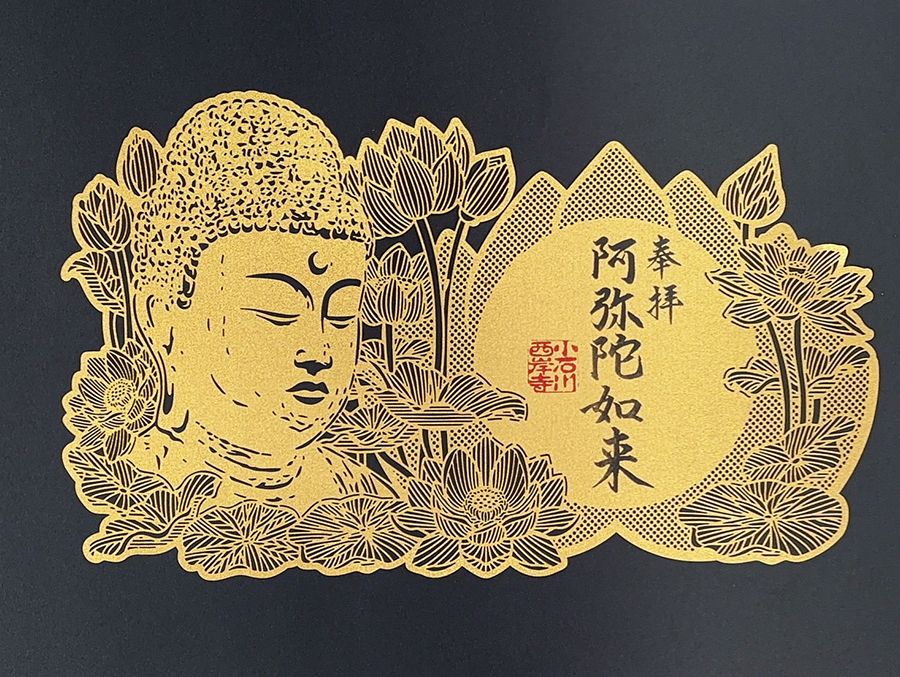 奉拝
阿弥陀如来
小石川
西岸寺